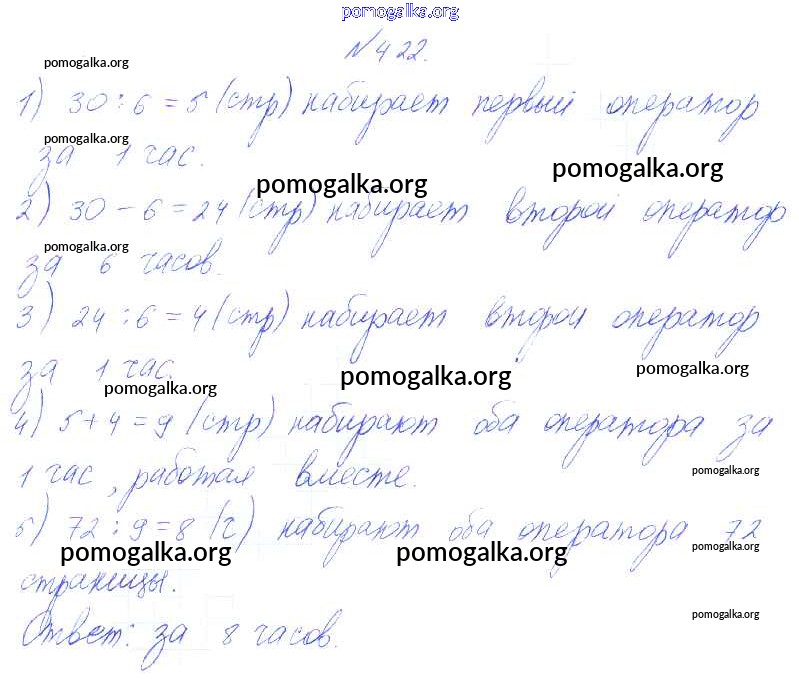 pomogalka.org
№422.
pomogalka.org
1) 30 : 6 = 5 (стр) набирает первый оператор
pomogalka.org
за 1 час.
pomogalka.org
pomogalka.org
2) 30 - 6 = 24 (стр) набирает второй оператор
pomogalka.org
за 6 часов.
3) 24 : 6 = 4 (стр) набирает второй оператор
за 1 час.
pomogalka.org
pomogalka.org
pomogalka.org
4) 5 + 4 = 9 (стр) набирают оба оператора за
1 час, работая вместе.
pomogalka.org
5) 72 : 9 = 8 (ч) набирают оба оператора 72
pomogalka.org
pomogalka.org
pomogalka.org
страницы.
pomogalka.org
Ответ: за 8 часов.